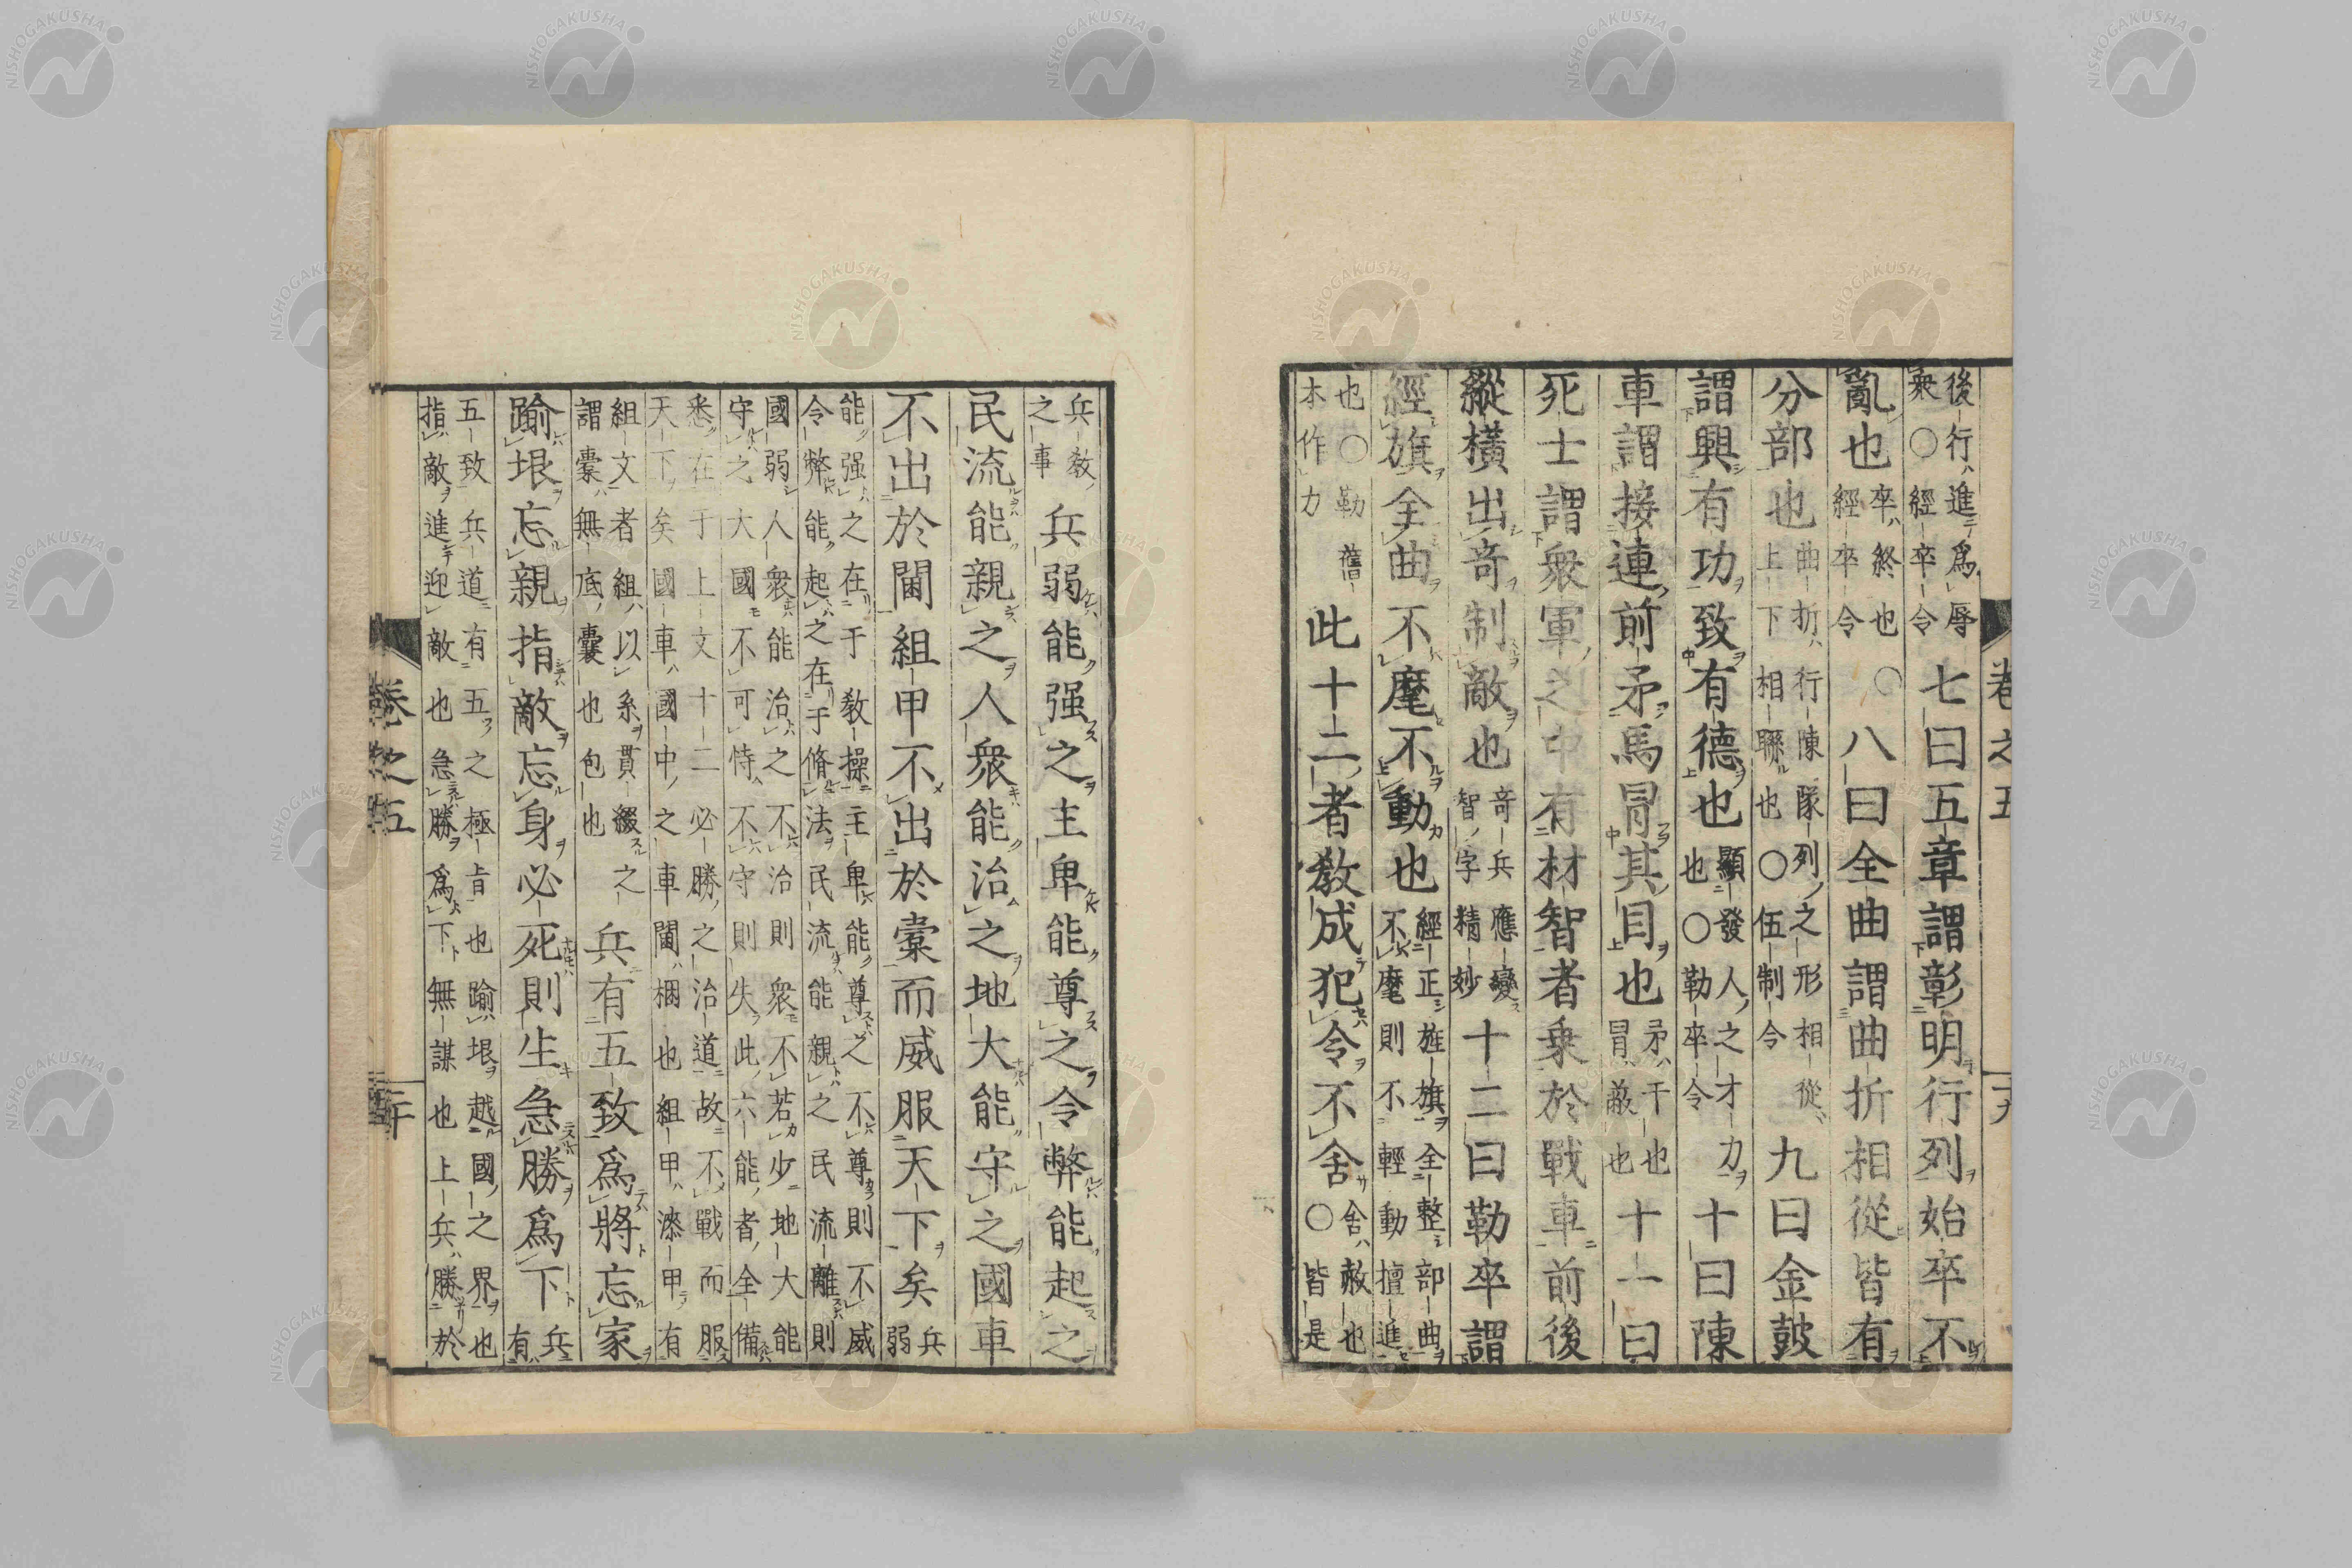 後行進爲辱衆○經卒令七曰五章謂彰明行列始卒不
亂也卒終也○經卒令八曰全曲謂曲折相從皆有
分部也曲折行陳隊列之形相從上下相聯也○伍制令九曰金鼓
謂興有功致有德也顯發人之才力也○勒卒令十曰陳
車謂接連前矛馬冒其目也矛干也冒蔽也十一曰
死士謂衆軍之中有材智者乘於戰車前後
縱横出奇制敵也奇兵應變智字精妙十二曰勒卒謂
經旗全曲不麾不動也經正旌旗全整部曲不麾則不輕動擅進
也○勒舊本作力此十二者教成犯令不舍舍赦也○皆是
卷之五
十九
兵教之事兵弱能强之主卑能尊之令弊能起之
民流能親之人衆能治之地大能守之國車
不出於閫組甲不出於櫜而威服天下矣兵弱
能强之在于教操主卑能尊之不尊則不威令弊能起之在于脩法民流能親之民流離則
國弱人衆能治之不治則衆不若少地大能守之大國不可恃不守則失此六能者全備
悉在于上文十二必勝之治道故不戰而服天下矣國車國中之車閫梱也組甲漆甲有
組文者組以糸貫綴之謂櫜無底囊也包也兵有五致爲將忘家
踰垠忘親指敵忘身必死則生急勝爲下兵有
五致兵道有五之極旨也踰垠越國之界也指敵進迎敵也急勝爲下無謀也上兵勝於
卷之五
二十
NISHOGAKUSHA